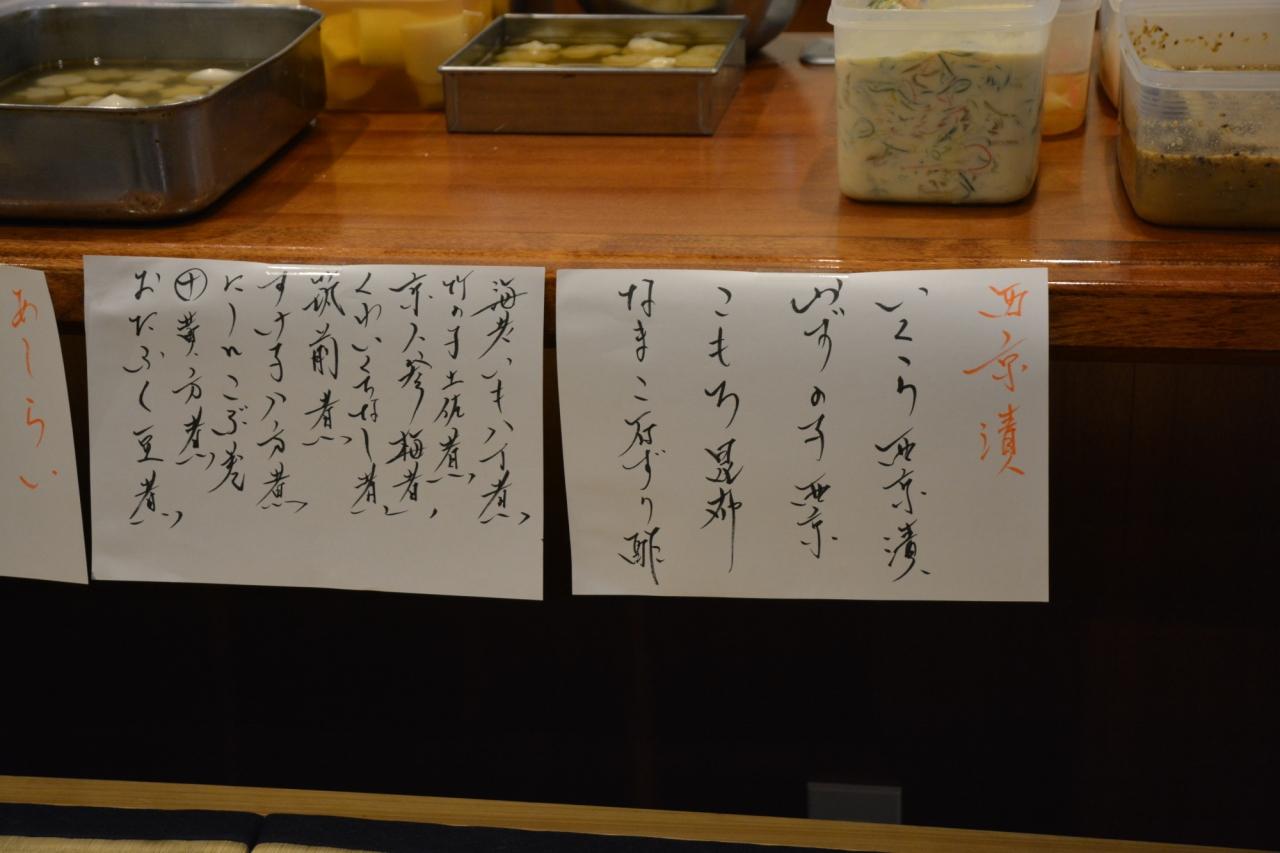 西京漬
いくら西京漬
かずの子西京
こもち昆布
なまこ府ずり酢
海老いも八丁煮
竹の子土佐煮
京人参梅煮
くわいくちなし煮
筑前煮
すけ子八方煮
にしんこぶ巻
黄八方煮
おたふく豆煮
あしらい